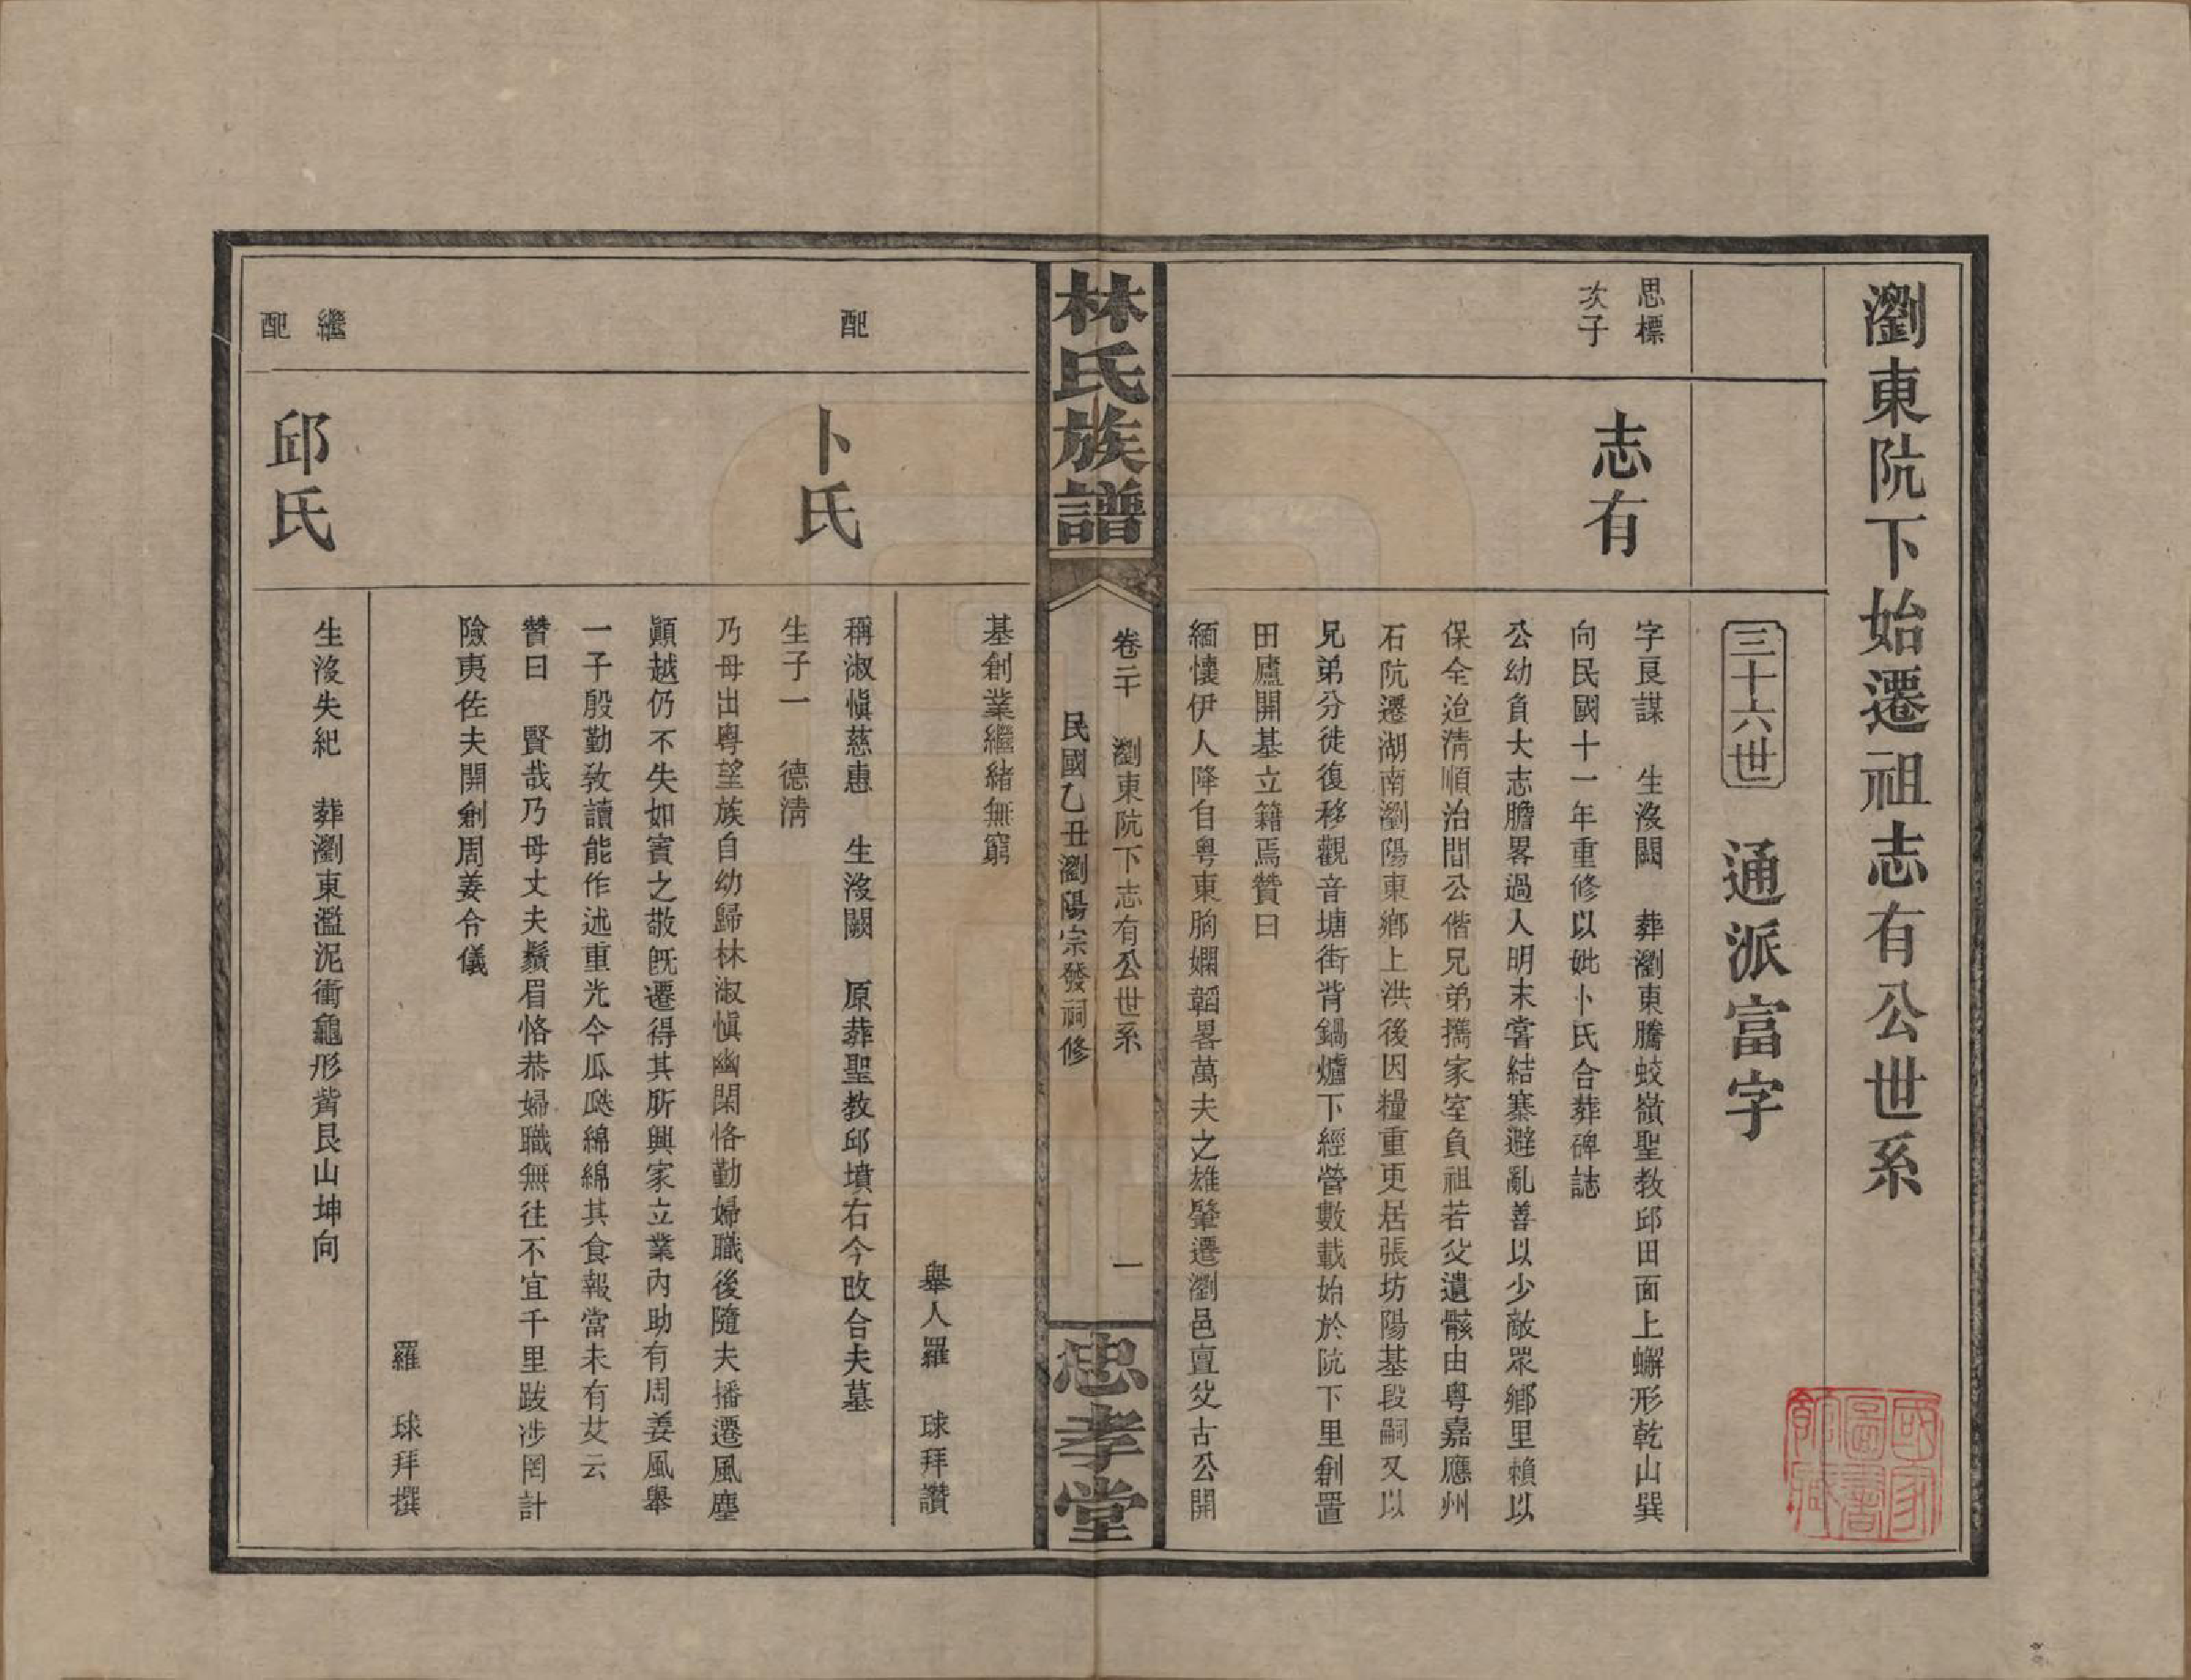 瀏東阬下始遷祖志有公世系
三十六世　通派富字
思標
次子
志有
字良謀　生沒闕　葬瀏東騰蛟嶺聖教邱田面上蠏形乾山巽
向民國十一年重修以妣卜氏合葬碑誌
公幼負大志膽畧過人明末嘗結寨避亂善以少敵眾鄉里賴以
保全迨清順治間公偕兄弟攜家室負祖若父遺骸由粵嘉應州
石阬遷湖南瀏陽東鄉上洪後因糧重更居張坊陽基段嗣又以
兄弟分徙復移觀音塘街背鍋爐下經營數載始於阬下里創置
田廬開基立籍焉贊曰
緬懷伊人降自粵東胸嫻韜畧萬夫之雄肇遷瀏邑亶父古公開
林氏族譜
卷二十　瀏東阬下志有公世系　一
民國乙丑瀏陽宗發祠修
忠孝堂
基創業繼緒無窮
舉人羅　球拜讚
配
卜氏
稱淑慎慈惠　生沒闕　原葬聖教邱墳右今改合夫墓
生子一　德清
乃母出粵望族自幼歸林淑慎幽閑恪勤婦職後隨夫播遷風塵
顛越仍不失如賓之敬既遷得其所興家立業內助有周姜風舉
一子殷勤教讀能作述重光今瓜瓞綿綿其食報當未有艾云
贊曰　賢哉乃母丈夫鬚眉恪恭婦職無往不宜千里跋涉罔計
險夷佐夫開創周姜令儀
羅　球拜撰
繼
配
邱氏
生沒失紀　葬瀏東濫泥衝龜形背艮山坤向
國家
圖書
館藏